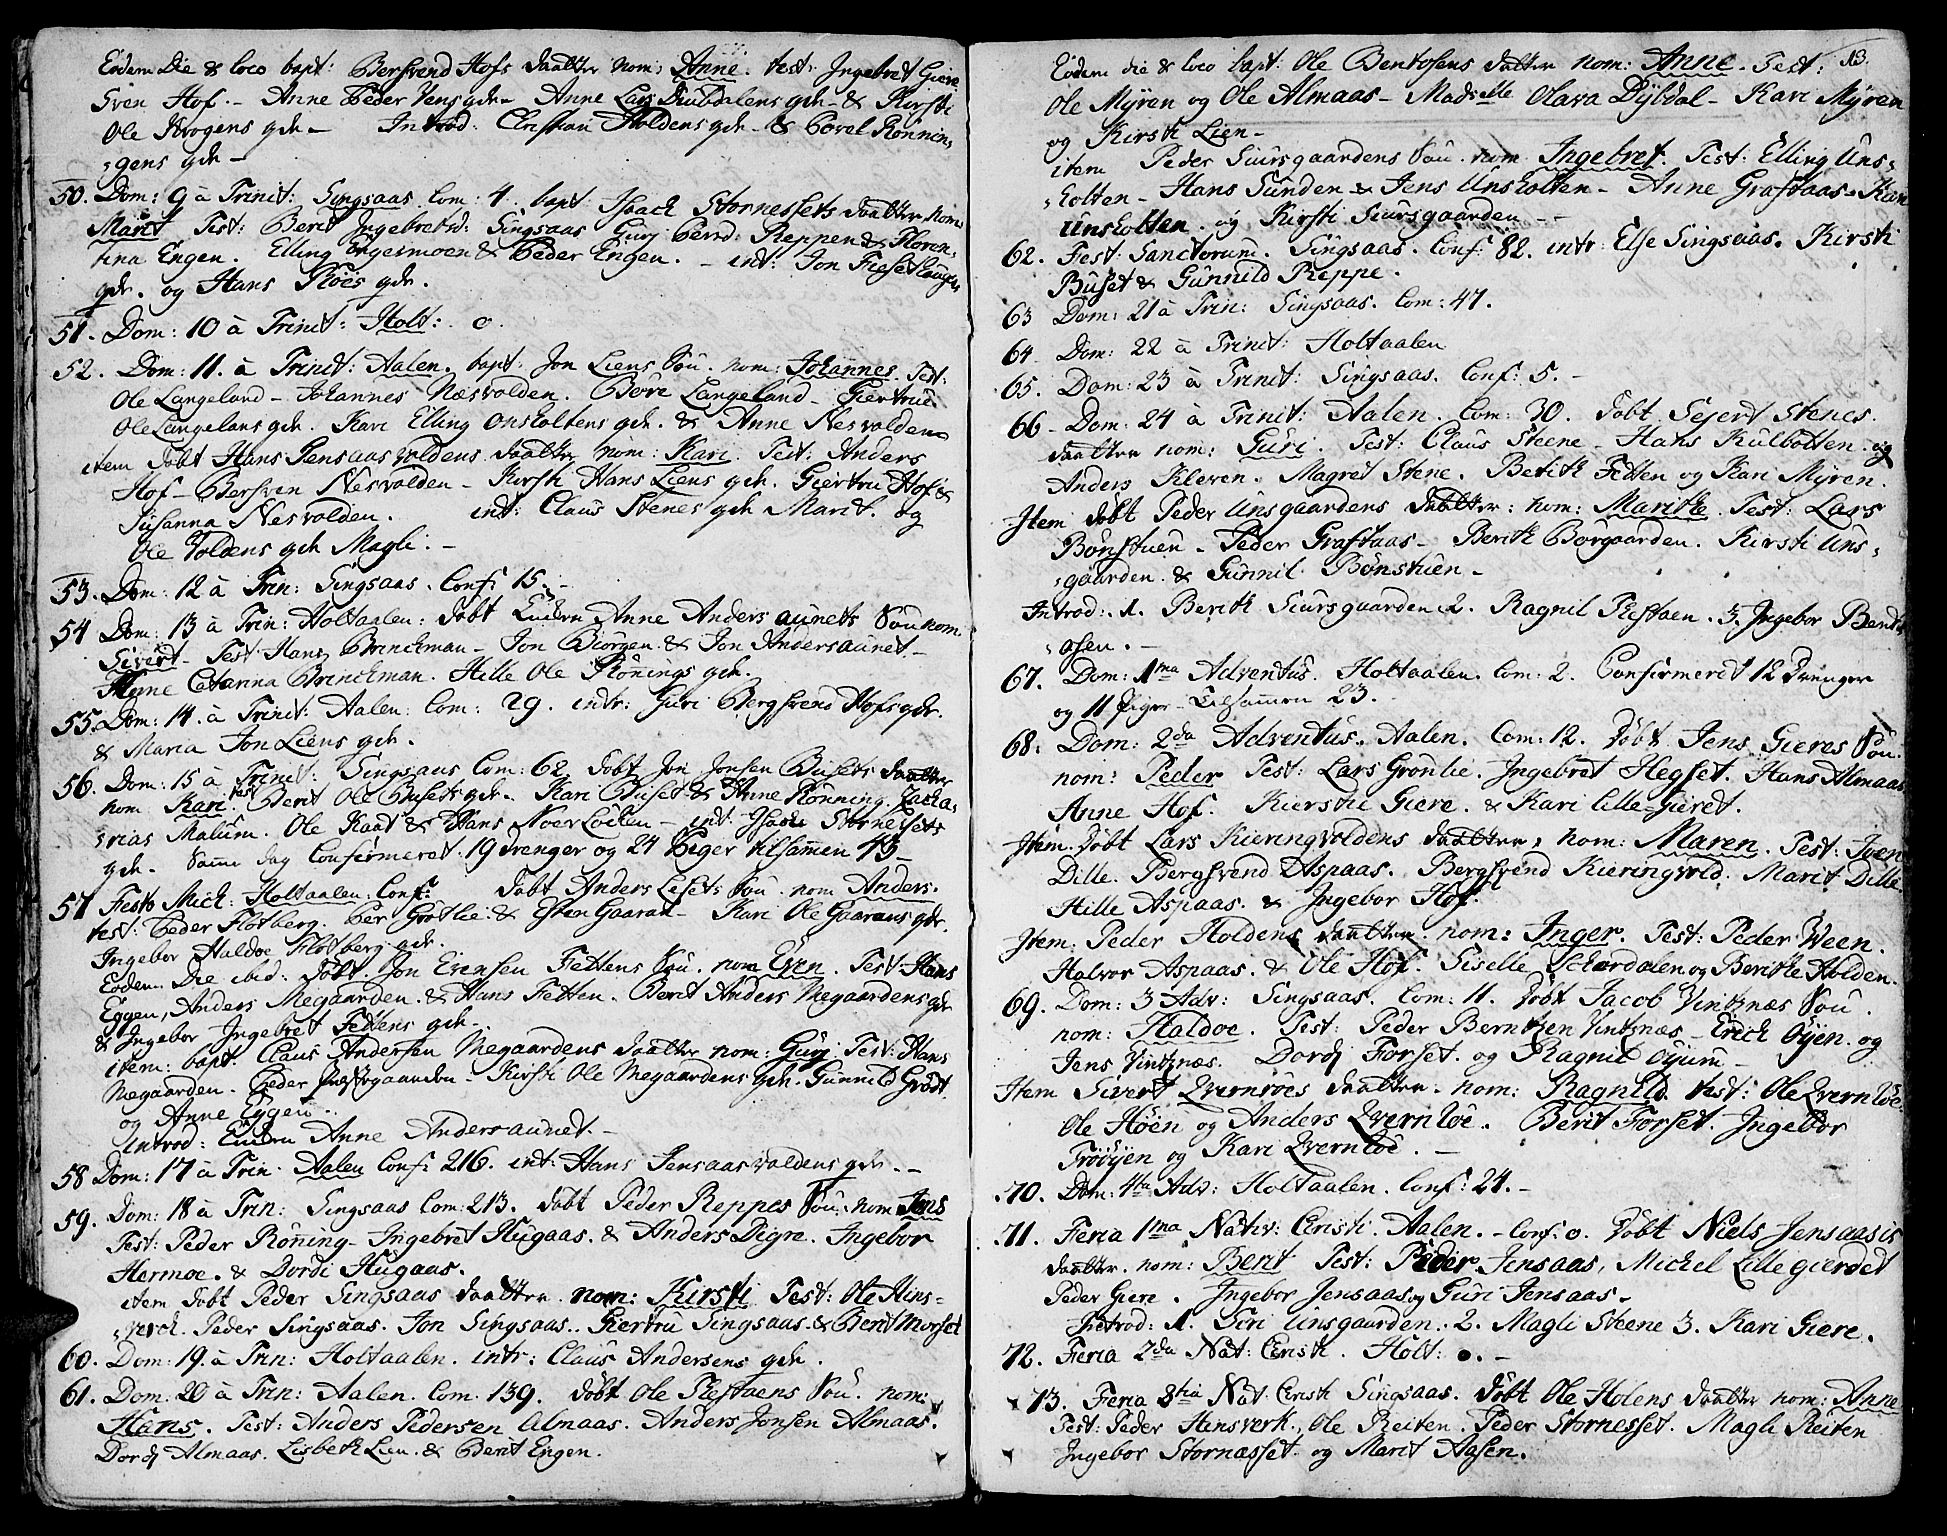 Eodem Die & loco bapt: Bersvend Hofs daatter nom: Anne. test: Ingebret Giere
Sven Hof. - Anne Peder Vens gdr - Anne Lars Diubdalens gdr - & Kirsti
Ole Krogens gdr - Introd: Christian Holdens gdr - & Borel Rønnin,
,gens gdr -
50. Dom: 9 à Trinit: Singsaas Com: 4. bapt: Isaach Stornessets daatter nom:
Marit Test: Berit Ingebretsd: Singsaas Guri Berrd: Reppen & Floren,
tina Engen. Elling Engesmoen & Peder Engen. - int: Jon
gdr. og Hans Floes gdr.
51. Dom: 10 à Trinit: Holt: o.
52. Dom: 11. à Trinit: Aalen. bapt: Jon Liens Søn. nom: Johannes. Test:
Ole Langeland - Johannes Næsvolden. Bore Langeland - Giertrue
Ole Langelans gdr. Kari Elling Onsholtens gdr. & Anne Nesvolden
item døbt Hans Jensaasvoldens daatter nom: Kari. Test: Anders
Hof - Bersven Nesvolden - Kirsti Hans Liens gdr. Giertru Hof &
Susanna Nesvolden. int: Claus Stenes gdr Marit. og
Ole Voldens gdr Magli. -
53. Dom: 12 à Trin: Singsaas. Conf: 15. -
54 Dom: 13 à Trin: Holtaalen: døbt Anne Andersaunets Søn nom.
Sivert - Test Hans Brinckman - Jon Biørgen & Jon Andersaunet -
Anne Catarina Brinckman. Hille Ole Rønings gdr.
55. Dom: 14. à Trinit: Aalen: Com: 29. intr: Guri Bergsvend Hofs gdr.
& Maria Jon Liens gdr.
56. Dom: 15 à Trinit: Singsaas Com: 62 døbt Jon Jonsen Busets daatter
nom Kari test Berit Ole Busets gdr. Kari Buset & Anne Rønning. Zacha,
,rias Malum. Ole Kaat & Hans Noer Løcken - int: Isach Stornessets
gdr. Samme dag Confirmeret 19 drenger og 24 Piger tilsammen 43 -
57 Festo Mich: Holtaalen: Conf: døbt Anders Lesets Søn. nom Anders.
test: Peder Flotberg. Per Grøtlie & Esten Gaaran - Kari Ole Gaarans gdr.
Ingebor Haldoe Flotberg gdr.
Eodem Die ibid: døbt. Jon Evensen Fettens Søn. nom Even. Test: Hans
Eggen, Anders Megaarden. & Hans Fetten. Berit Anders Megaardens gdr
& Ingebor Ingebret Fettens gdr -
item: bapt: Claus Andersen Megaardens daatter nom: Guri Test: Hans
Megaarden. Peder Præstegaarden - Kirsti Ole Megaardens gdr. Gunnild Grødt
og Anne Eggen.
introd: Anne Andersaunet. -
58 Dom: 17 à Trin: Aalen Conf: 216. int: Hans Jensaasvoldens gdr. -
59. Dom: 18 à Trin: Singsaas Com: 213. døbt Peder Reppes Søn. nom Jens
Test: Peder Rønning - Ingebret Hugaas. & Anders Digre. Ingebor
Hermoe. & Dordi Hugaas.
item døbt Peder Singsaas daatter nom: Kirsti Test: Ole Hins=
,verck. Peder Singsaas. Jon Singsaas. Giertru Singsaas & Berit Morset
60. Dom: 19. à Trin: Holtaalen. intr: Claus Andersens gdr.
61. Dom: 20 à Trin: Aalen. Com: 139. døbt Ole Restaens Søn. nom:
Hans. Test: Anders Pedersen Almaas. Anders Jonsen Almaas.
Dordj Almaas. Lisbeth Lien. & Berit Engen.
13.
Eodem die & loco bapt: Ole Bentosens datter nom: Anne. Test:
Ole Myren og Ole Almaas - Madselle Olava Dybdal - Kari Myren
og Kirsti Lien -
item Peder Siursgaardens Søn nom Ingebret. Test: Elling Uns=
,holten - Hans Sunden & Jens Unsholten - Anne Graftaas - Kari
Unsholten. og Kirsti Siursgaarden. -
62. Fest: Sanctorum. Singsaas. Conf: 82. intr: Else Singsaas. Kirsti
Buset & Gunnild Reppe.
63 Dom: 21 à Trin: Singsaas. Com: 47.
64. Dom: 22 à Trinit: Holtaalen
65. Dom: 23 à Trinit: Singsaas. Conf: 5. -
66 - Dom: 24 à Trinit: Aalen. Com: 30. døbt Sejert Stenes
daatter nom: Guri. Test: Claus Steene - Hans Kulbotten. og
Anders Kleven. Magret Stene. Berith Fetten og Kari Myren.
Item døbt Peder Unsgaardens daatter: nom: Marithe. Test: Lars
Bønstuen - Peder Graftaas - Berith Borgaarden. Kirsti Uns,
,gaarden. & Gunnil Bønstuen -
Introd: 1. Berith Siursgaarden. 2. Ragnil Restaen. 3. Ingebor Bent
,osen. -
67. Dom: 1ma Adventus. Holtaalen. Com: 2. Confirmeret 12 Drenger
og 11 Piger - Tilsammen 23.
68. Dom: 2da Adventus. Aalen. Com: 12. Døbt Jens Gieres Søn
nom: Peder Test: Lars Grønlie. Ingebret Hegset. Hans Almaas
Anne Hof. Kierstie Giere. & Kari Lille-Gieret.
Item. døbt Lars Kieringvoldens daatter, nom: Maren. Test: Iven
Dille. Bergsvend Aspaas. Bergsvend Kieringvold. Marit Dille
Hille Aspaas. & Ingebor Hof.
Item: Peder Holdens daatter nom: Inger. Test: Peder Ween.
Halvor Aspaas. & Ole Hof. Siselle Schardalen og Berithe Holden.
69. Dom: 3 Adv: Singsaas. Com: 11. døbt Jacob Vintznæs Søn.
nom: Haldoe. Test: Peder Berntzen Vintznæs - Erick Øyen. og
Jens Vintznæs. Dordj Forset. og Ragnil Øyum -
Item Sivert Qvernroes daatter. nom: Ragnild. test: Ole Qverntøe.
Ole Høen og Anders Qverntøe. Berit Forset. Ingebor
Frøijen og Kari Qverntøe. -
70. Dom: 4ta Adv: Holtaalen. Conf: 24. -
71. Feria 1ma Nativ: Christi. Aalen. - Conf: o. døbt Niels Jensaasis
daatter. nom: Berit Test: Peder Jensaas, Michel Lillegierdet
Peder Giere. Ingebor Jensaas og Guri Jensaas -
Introd: 1. Siri Unsgaarden. 2. Magli Steene 3. Kari Giere.
72. Feria 2da Nat: Christi. Holt: o. -
73. Feria 3tia Nat Christi Singsaas. døbt Ole Holens daatter nom: Anne
Test: Peder Hinsverk. Ole Reiten. Peder Stornesset. Magli Reiten
Ingebor Stornæsset og Marit Aasen.